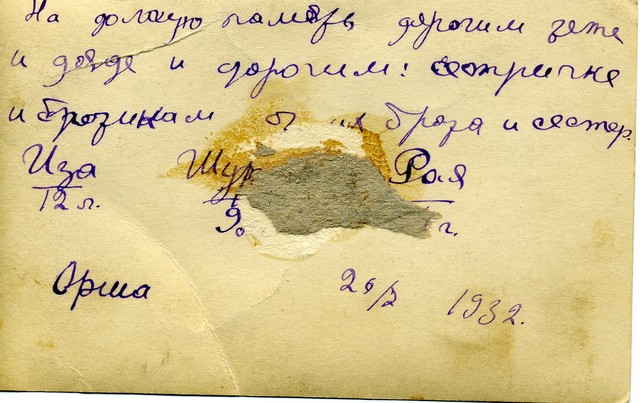 На долгую память дорогим тете
и дяде и дорогим: сестричке
и братикам от их брата и сестер.
Иза Шур Рая
12 л. 9 г.
Орша 1932.